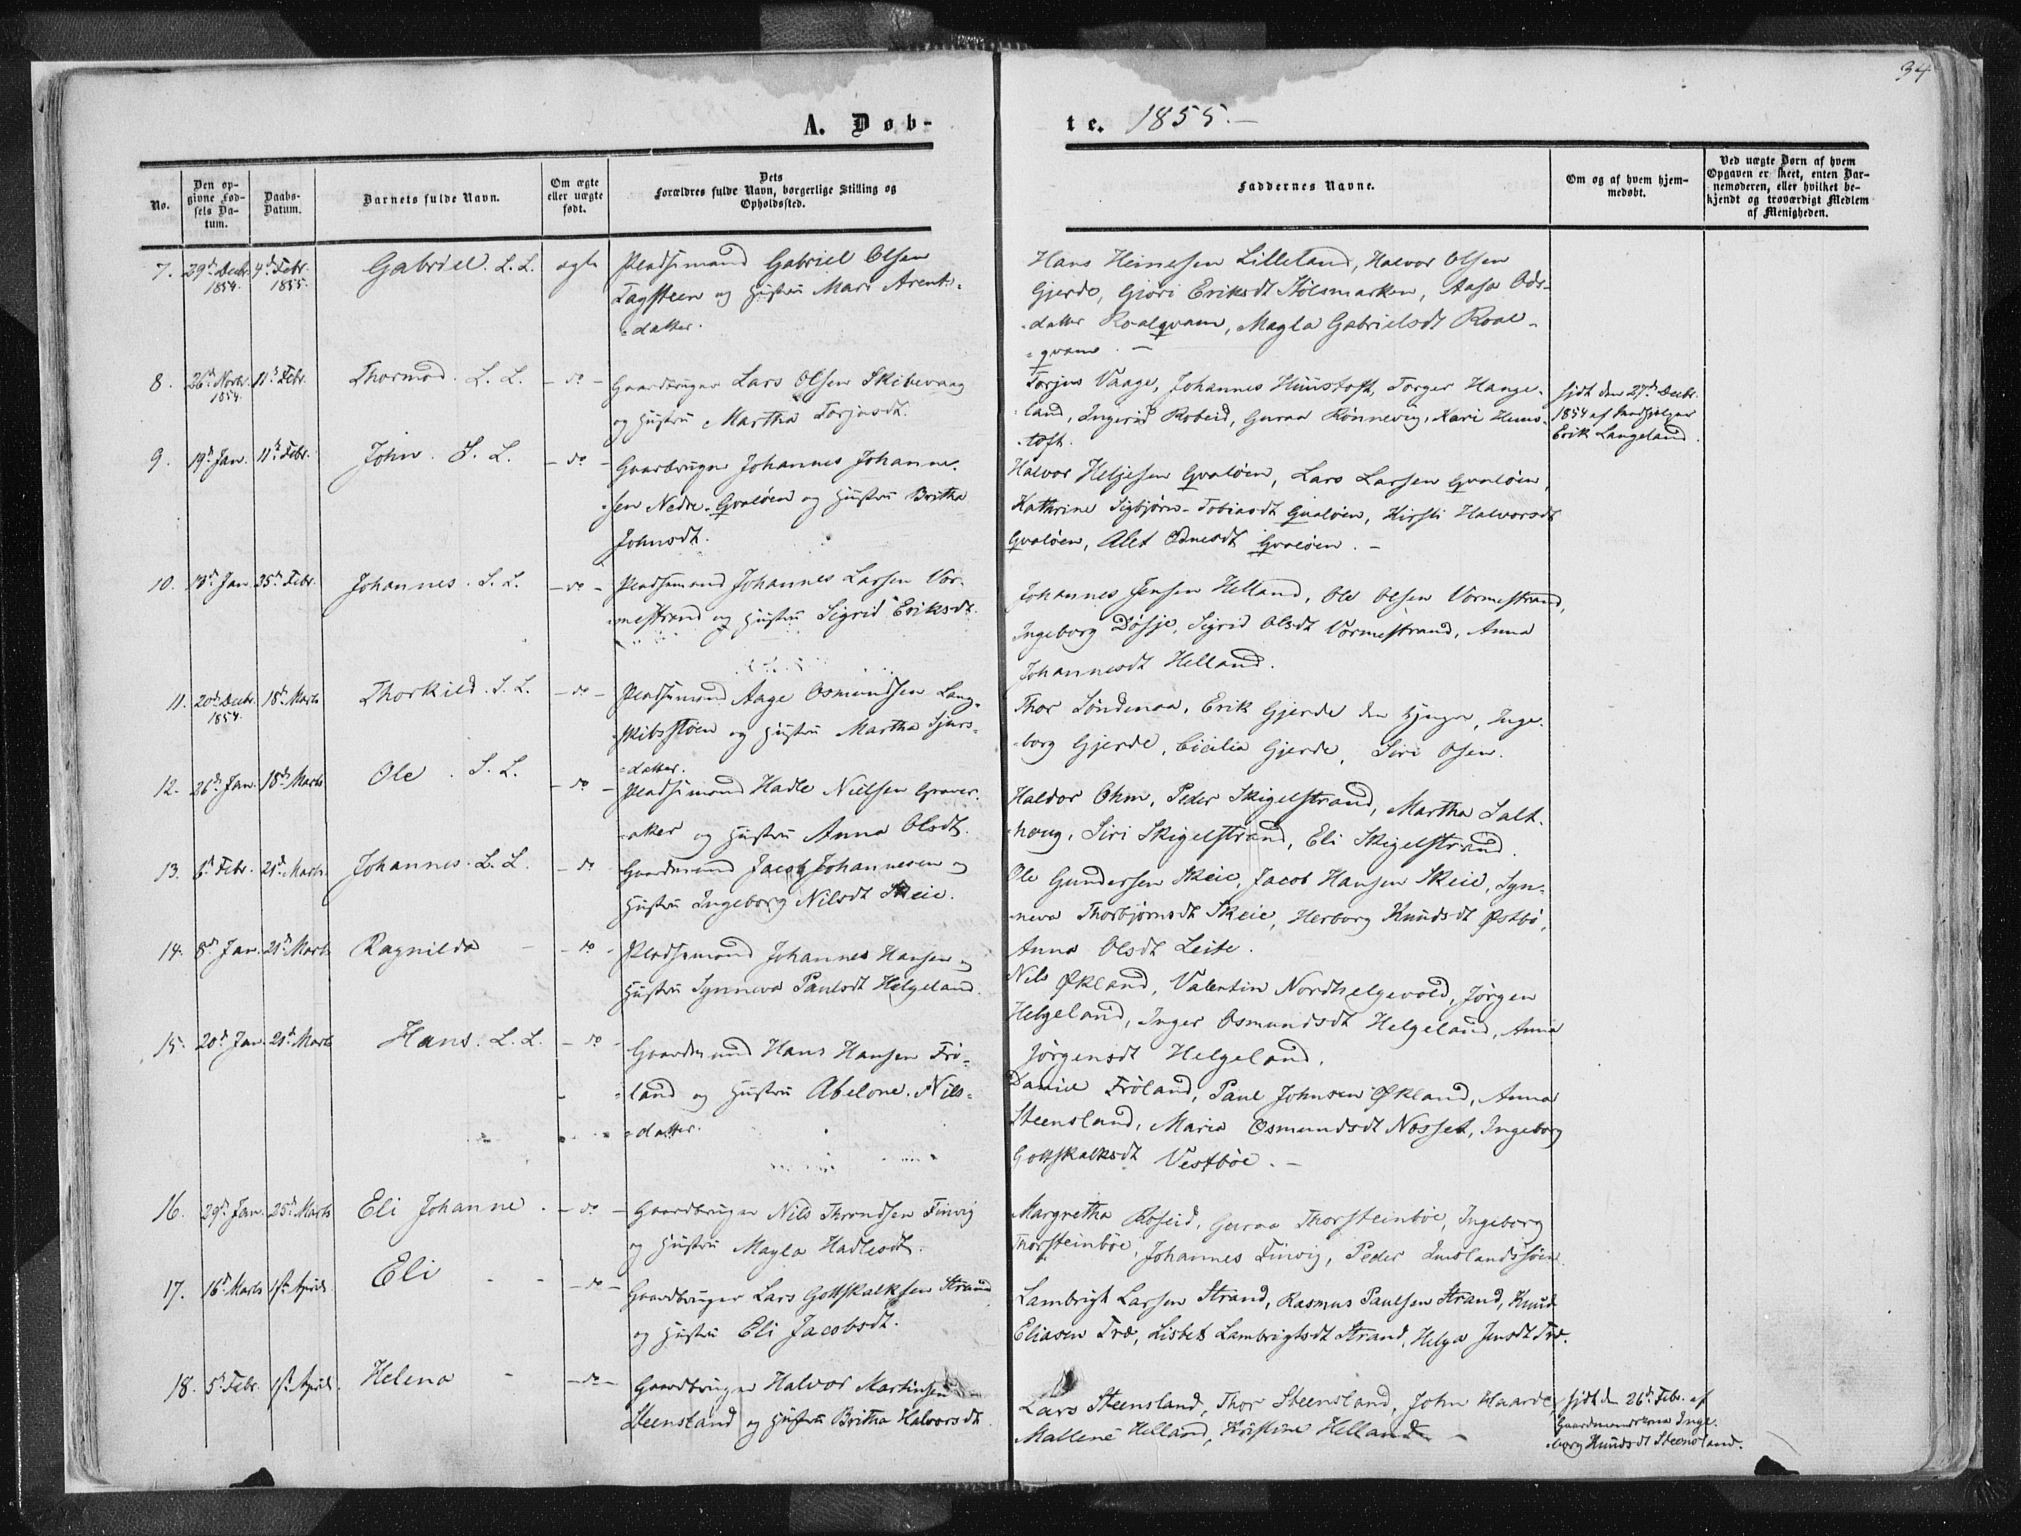 34
A. Døb-
te. 1855.-
No.
Den opgivne Fødsels Datum.
Daabs-Datum.
Barnets fulde Navn.
Om ægte eller uægte født.
Dets
Forældres fulde Navn, borgerlige Stilling og
Opholdssted.
Faddernes Navne.
Om og af hvem hjemmedøbt.
Ved uægte Børn af hvem
Opgaven er skeet, enten Barnemoderen, eller hvilket bekjendt og troværdigt Medlem
af Menigheden.
7. 29de Decbr. 1854. 4de Febr. 1855. Gabriel. L. L. ægte Pladsemand Gabriel Olsen
Tagsteen og Hustru Mari Arents-
-datter.
Hans Heinesen Lilleland, Halvor Olsen
Gjerde, Gjøri Eriksdt Stølsmarken, Aasa Ods-
datter Roalqvam, Magla Gabrielsdt Roal-
-qvam. -
8. 26de Novbr. 1854. 11te Febr. Thormod. L. L. - do - Gaardbruger Lars Olsen Skibevaag
og Hustru Martha Torjusdt.
Torjus Vaage, Johannes Huustoft, Torger Hauge-
land, Ingerid Robeid, Guraa Rønnevig, Kari Huus-
-toft.
hjdt den 27de Decbr.
1854 af
Erik Langeland.
9. 19de Jan. 11te Febr. John. S. L. - do - Gaardbruger Johannes Johanne-
-sen Nedre-Qvaløen og Hustru Britha
Johnsdt.
Halvor Heljesen Qvaløen, Lars Larsen Qvaløen,
Kathrine Sigbjørn-Tobiasdt Qvaløen, Kirsti Halvorsdt
Qvaløen, Alet Ednesdt Qvaløen. -
10. 13de Jan. 25de Febr. Johannes. S. L. - do - Pladsemand Johannes Larsen Vor-
mestrand og Hustru Sigrid Eriksdt.
Johannes Jensen Helland, Ole Olsen Vormestrand,
Ingeborg Døsje, Sigrid Olsdt Vormestrand, Anna
Johannesdt Helland.
11. 20de Decbr. 1854. 18de Marts Thorkild. S. L. - do - Pladsemand Aage Osmundsen Lang-
-skibsstøen og Hustru Martha Sjurs-
-datter.
Thor Søndenaa, Erik Gjerde den yngre, Inge-
-borg Gjerde, Cicilia Gjerde, Siri Osen.
12. 26de Jan. 18de Marts Ole. S. L. - do - Pladsemand Hadle Nielsen Graver-
-aker og Hustru Anna Olsdt.
Haldor Ohm, Peder Skigelstrand, Martha Salt-
-houg, Siri Skigelstrand, Eli Skigelstrand.
13. 6te Febr. 21de Marts Johannes. L. L. - do Gaardmand Jacob Johannesen og
Hustru Ingeborg Nilsdt Skeie.
Ole Gundersen Skeie, Jacob Hansen Skeie, Syn-
-neva Thorbjørnsdt Skeie, Herborg Knudsdt Østbø,
Anna Olsdt Leite.
14. 8de Jan. 21de Marts Ragnilda - - do - Pladsemand Johannes Hansen og
Hustru Synneva Paulsdt Helgeland.
Nils Økland, Valentin Nordhelgevold, Jørgen
Helgeland, Inger Osmundsdt Helgeland, Anna
Jørgensdt Helgeland.
15. 20de Jan. 21de Marts Hans. L. L. - do - Gaardmand Hans Hansen Frø-
-land og Hustru Abelone Nils-
-datter.
Daniel Frøland, Paul Johnsen Økland, Anna
Steensland, Maria Osmundsdt Nosset, Ingeborg
Gottskalksdt Vestbøe. -
16. 29de Jan. 25de Marts Eli Johanne. - do - Gaardbruger Nils Throndsen Finvig
og Hustru Magla Hadlesdt.
Margretha Røseid, Guraa Thorsteinbøe, Ingeborg
Thorsteinbøe, Johannes Finvig, Peder Imslandssøen.
17. 16de Marts 1ste April Eli - - - do - Gaardbruger Lars Gottskalksen Strand
og Hustru Eli Jacobsdt.
Lambrigt Larsen Strand, Rasmus Paulsen Strand, Knud
Eliasen Træ, Lisbet Lambrigtsdt Strand, Helga Jensdt Træ.
18. 5te Febr. 1ste April. Helena - - do - Gaardbruger Halvor Martinsen
Steensland og Hustru Britha Halvorsdt.
Lars Steensland, Thor Steensland, John Haarde,
Mallene Helland, Kristine Helland. -
hjdt den 26de Febr. af
Gaardmandskona Inge-
-borg Knudsdt Steensland.